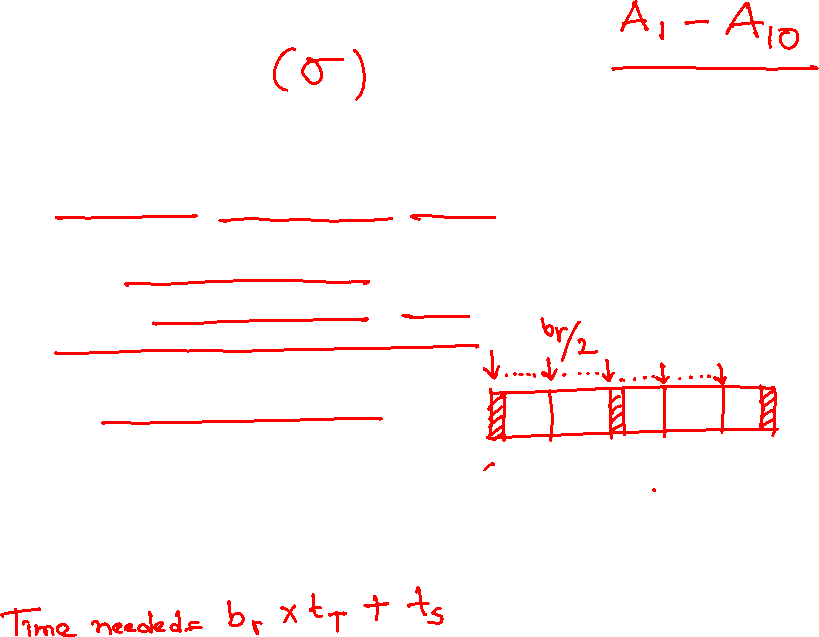 A₁ - A₁₀
(σ)
br/2
Time needed = bᵣ × t_T + t_s